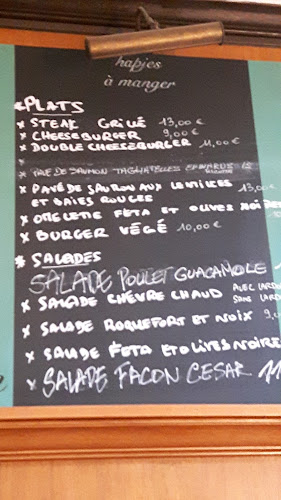 hapjes
à manger
* PLATS
* STEAK GRILLÉ 13,00 €
* CHEESEBURGER 9,00 €
* DOUBLE CHEESEBURGER 11,00 €
*
* PAVÉ DE SAUMON TAGLIATELLES
* PAVÉ DE SAUMON AUX LENTILLES 13,00
ET BAIES ROUGES
* OMELETTE FETA ET OLIVES NOIRES
* BURGER VÉGÉ 10,00 €
* SALADES
SALADE POULET GUACAMOLE
* SALADE CHÈVRE CHAUD AVEC LARDON
SANS LARDO
* SALADE ROQUEFORT ET NOIX 9,0
* SALADE FETA ET OLIVES NOIRE
* SALADE FACON CESAR 11